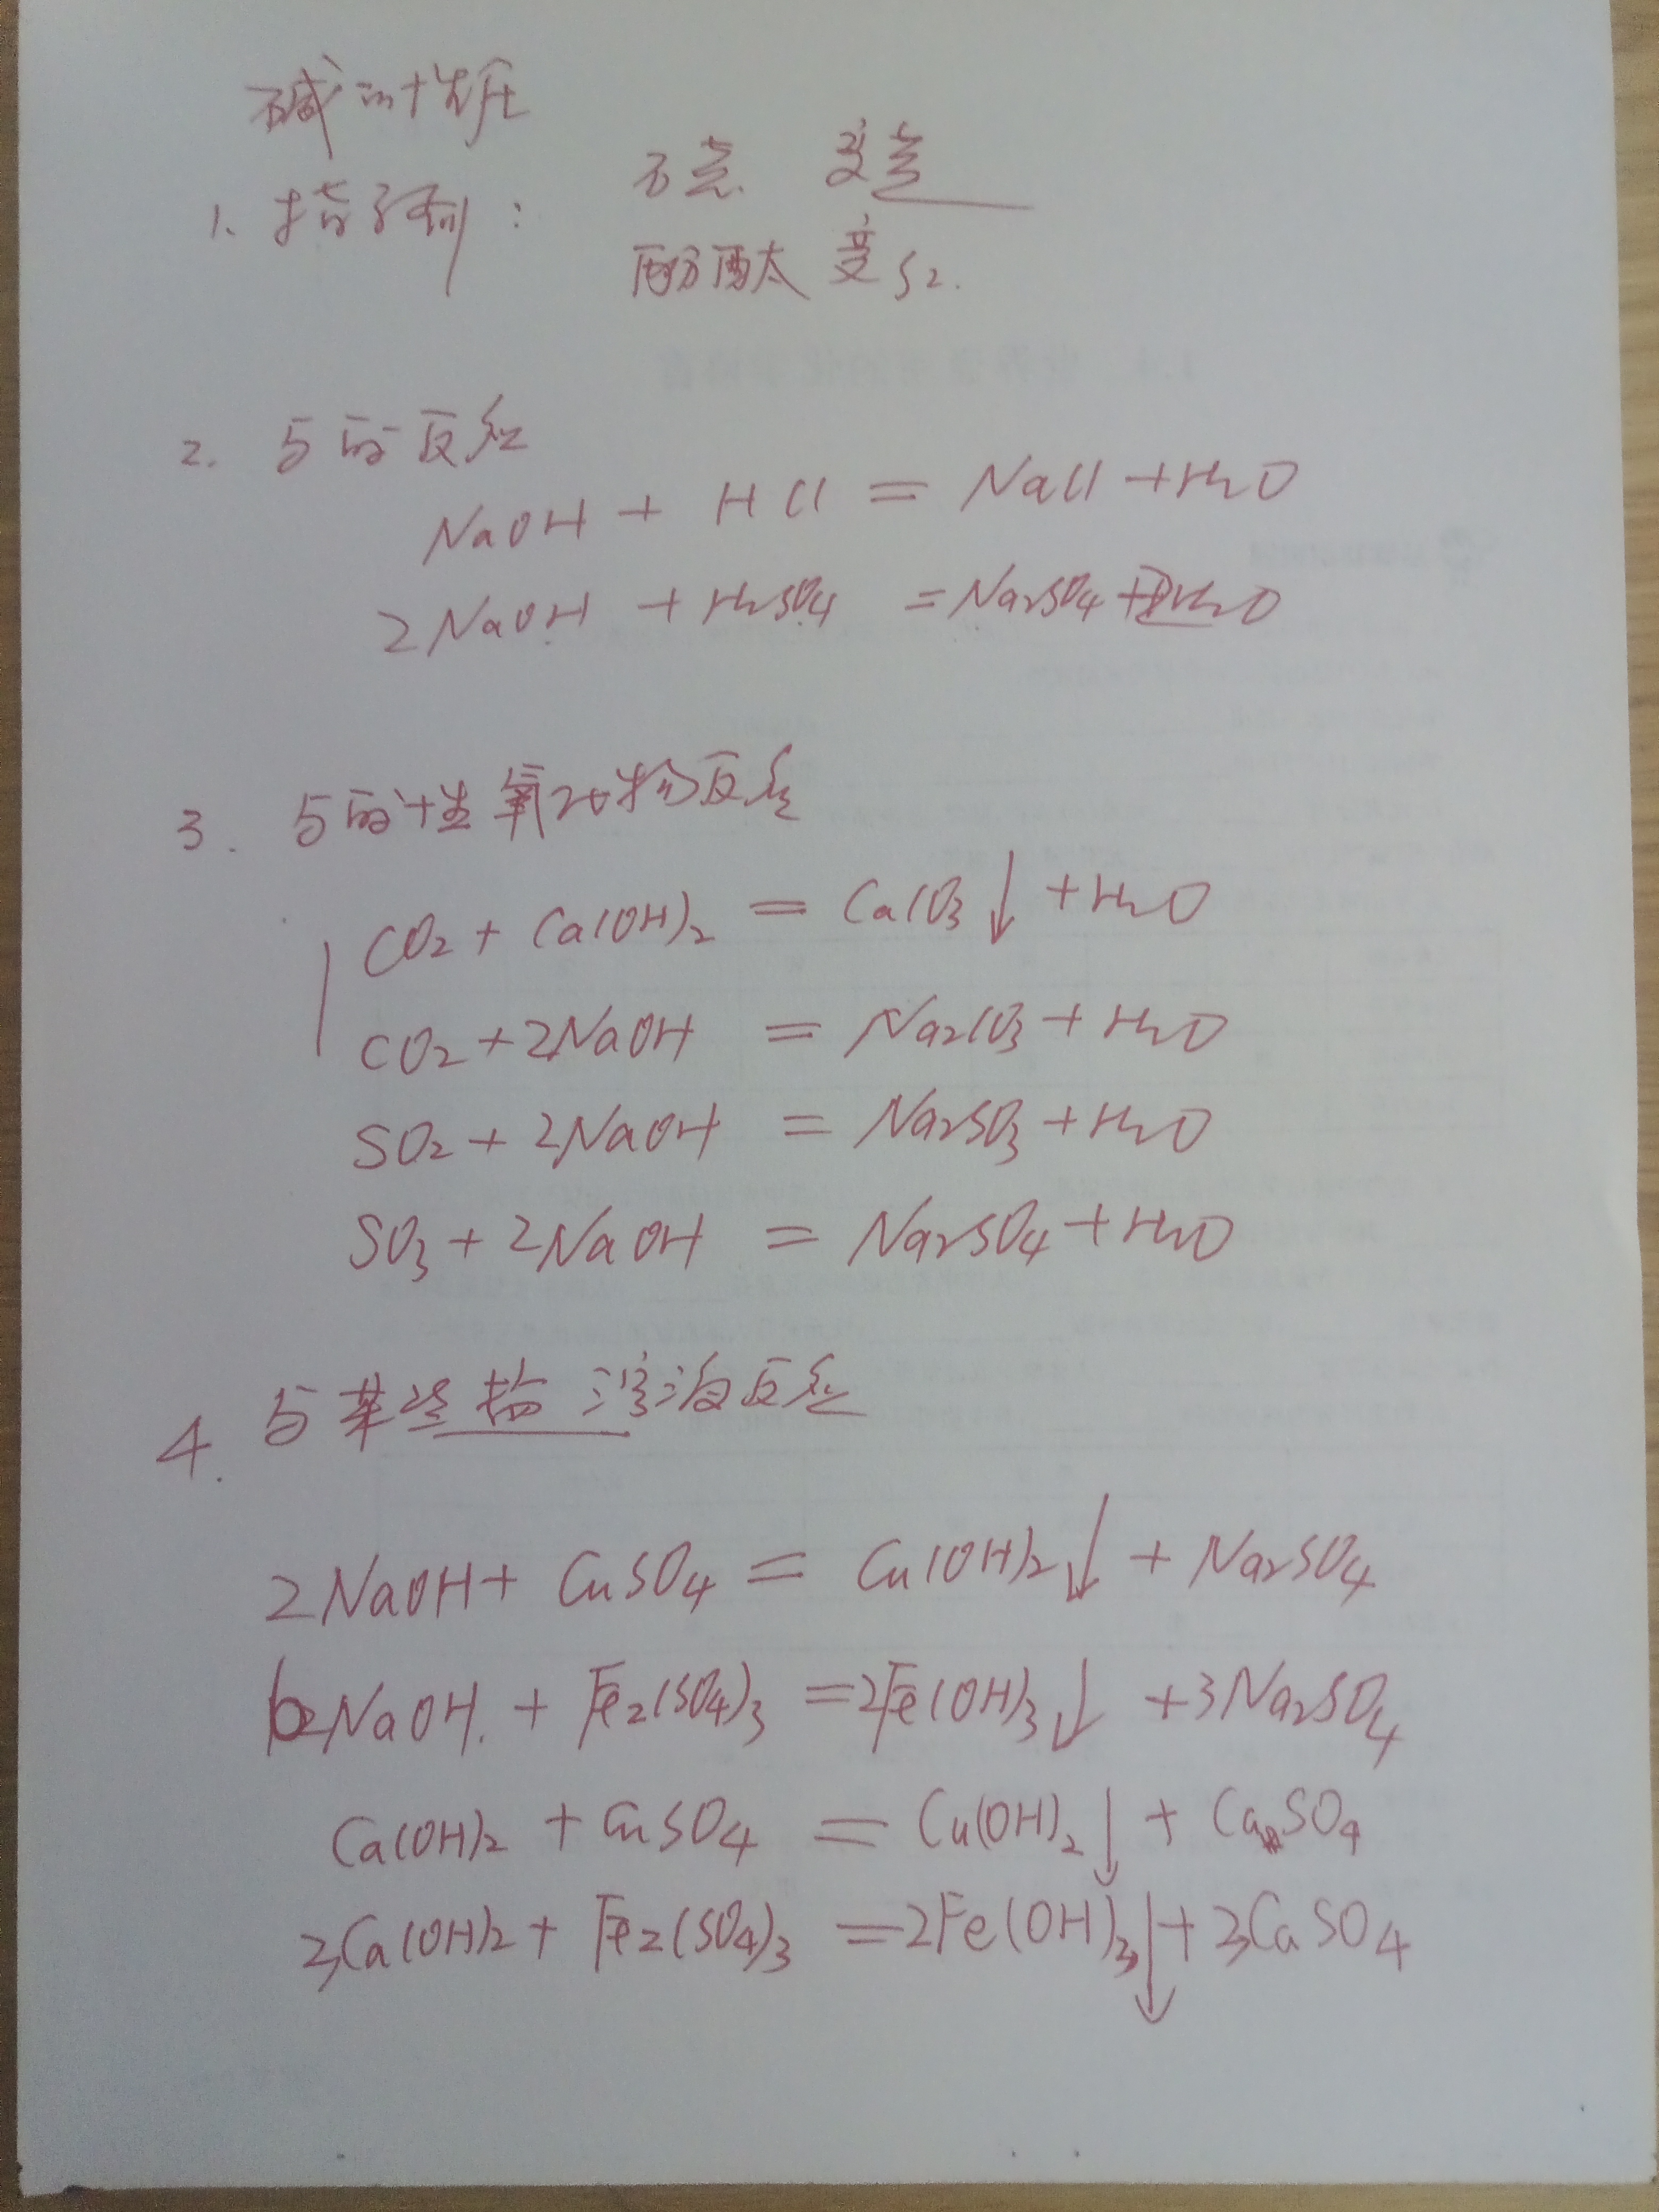 碱的性质
1. 指示剂: 石蕊 变蓝
酚酞 变红.
2. 与酸反应
NaOH + HCl = NaCl + H2O
2NaOH + H2SO4 = Na2SO4 + 2H2O
3. 与酸性氧化物反应
CO2 + Ca(OH)2 = CaCO3↓ + H2O
CO2 + 2NaOH = Na2CO3 + H2O
SO2 + 2NaOH = Na2SO3 + H2O
SO3 + 2NaOH = Na2SO4 + H2O
4. 与某些盐溶液反应
2NaOH + CuSO4 = Cu(OH)2↓ + Na2SO4
6NaOH + Fe2(SO4)3 = 2Fe(OH)3↓ + 3Na2SO4
Ca(OH)2 + CuSO4 = Cu(OH)2↓ + CaSO4
3Ca(OH)2 + Fe2(SO4)3 = 2Fe(OH)3↓ + 3CaSO4